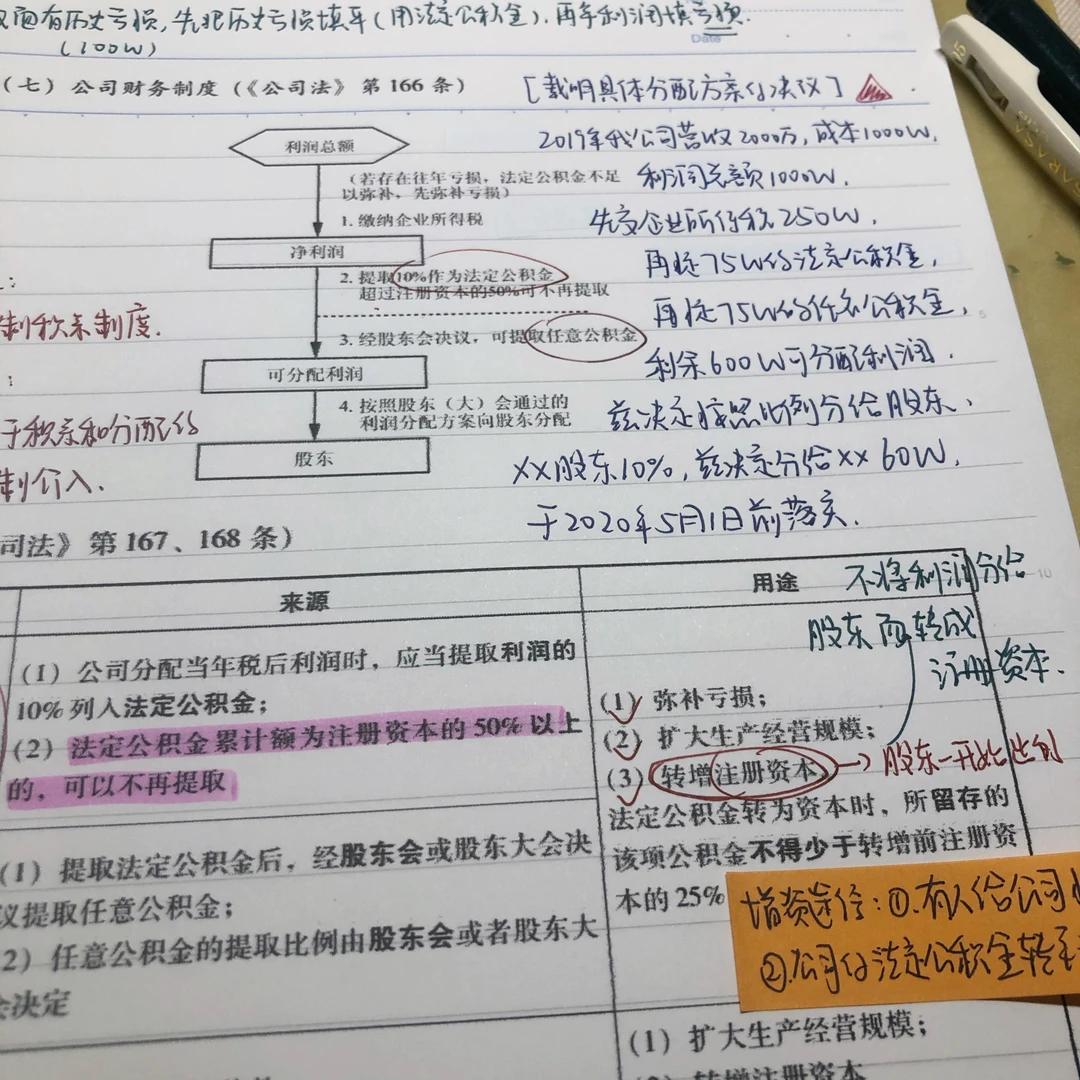 面有历史亏损,先把历史亏损填平(用法定公积金),再拿利润填亏损.
(100W)
Date
(七)公司财务制度(《公司法》第166条)
[载明具体分配方案的决议]
利润总额
(若存在往年亏损,法定公积金不足
以弥补,先弥补亏损)
1. 缴纳企业所得税
净利润
2. 提取10%作为法定公积金
超过注册资本的50%可不再提取
3. 经股东会决议,可提取任意公积金
可分配利润
4. 按照股东(大)会通过的
利润分配方案向股东分配
股东
2019年我公司营收2000万,成本1000W,
利润总额1000W.
先交企业所得税250W,
再提75W的法定公积金,
再提75W的任意公积金,
剩余600W可分配利润.
兹决定按照比例分给股东,
XX股东10%,兹决定分给XX 60W,
于2020年5月1日前落实.
制积累制度.
于积累和分配的
制介入.
司法》第167、168条)
来源
用途
不将利润分给
股东而转成
注册资本.
(1)公司分配当年税后利润时,应当提取利润的
10%列入法定公积金;
(2)法定公积金累计额为注册资本的50%以上
的,可以不再提取
(1)弥补亏损;
(2)扩大生产经营规模;
(3)转增注册资本
→股东一开始比例
法定公积金转为资本时,所留存的
该项公积金不得少于转增前注册资
本的25%
(1)提取法定公积金后,经股东会或股东大会决
议提取任意公积金;
2)任意公积金的提取比例由股东会或者股东大
会决定
增资途径:①.有人给公司
②.公司的法定公积金转
(1)扩大生产经营规模;
转增注册资本
SARASA